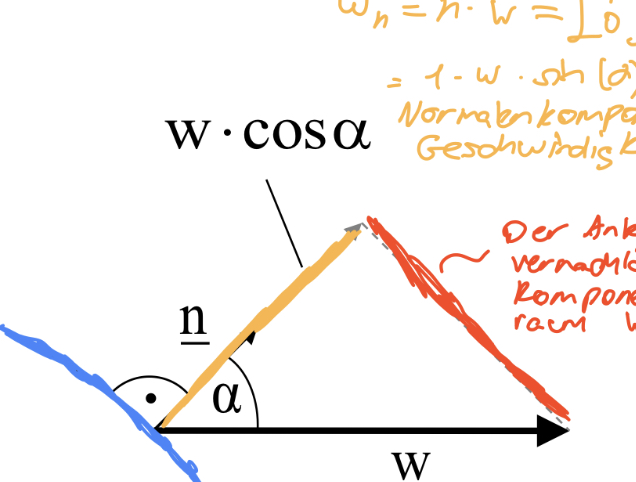 w_n = n · w =
= 1 · w · sin(α)
w · cos α
Normalenkompo
Geschwindigk
Der Ank
vernachlä
Kompone
raum w
n
α
w